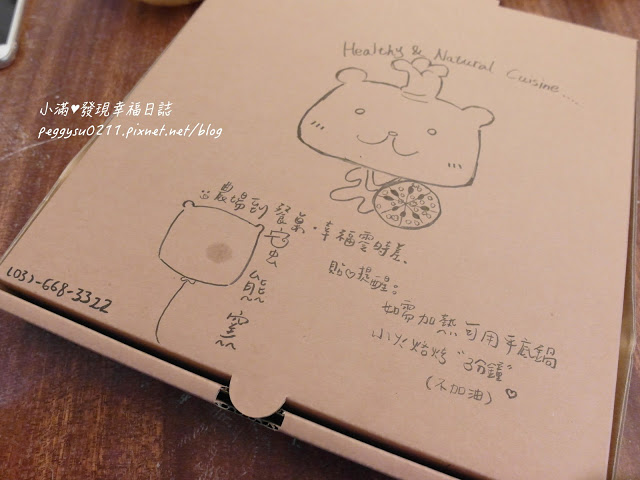 Healthy & Natural Cuisine....
小滿♥發現幸福日誌
peggysu0211.pixnet.net/blog
農場到餐桌,幸福零時差、
熊窩
(03)-668-3322
貼心提醒:
如需加熱可用平底鍋
小火焙烤"3分鐘"
(不加油)♡